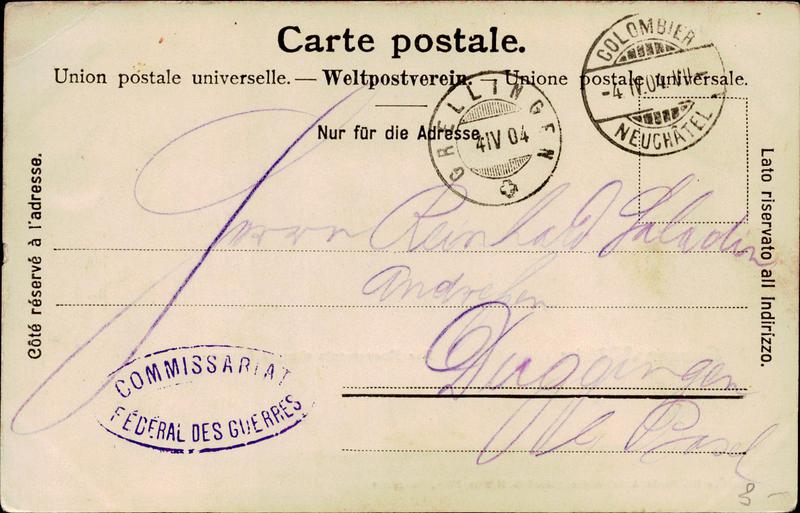 Carte postale.
Union postale universelle. — Weltpostverein. — Unione postale universale.
Nur für die Adresse
Côté réservé à l'adresse.
Lato riservato all Indirizzo.
COLOMBIER
-4 IV.04.VII
NEUCHÂTEL
GRELLINGEN
4 IV 04
Herrn Reinhold Saladin
Duggingen
Basel
COMMISSARIAT
FÉDÉRAL DES GUERRES
8-